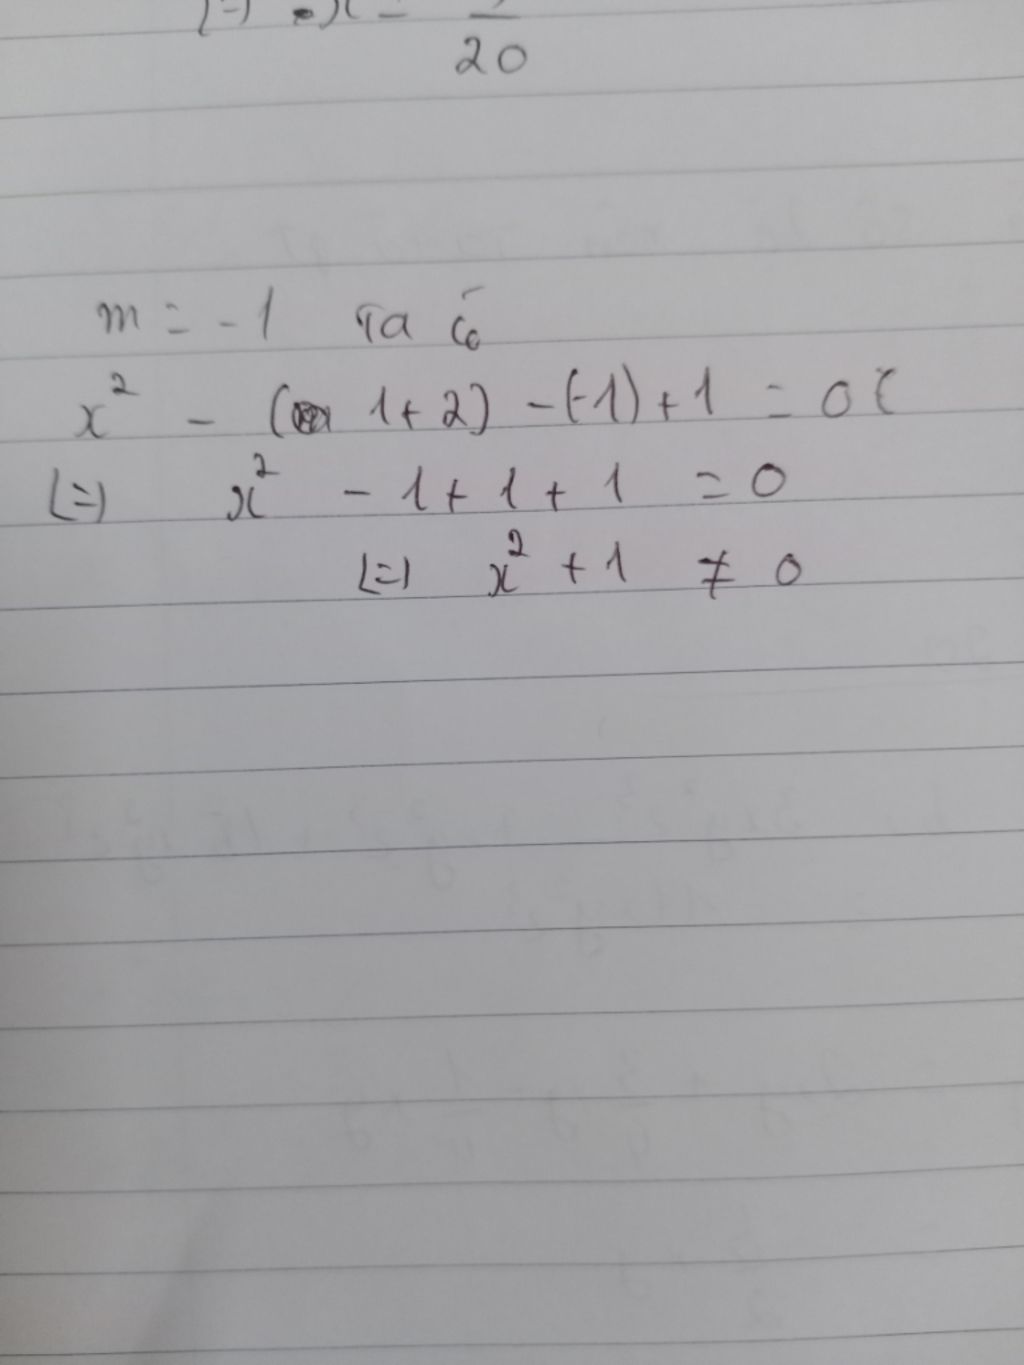 20
m = -1 Ta có
x² - ( 1+2) - (-1) + 1 = 0
(=) x² - 1 + 1 + 1 = 0
(=) x² + 1 ≠ 0